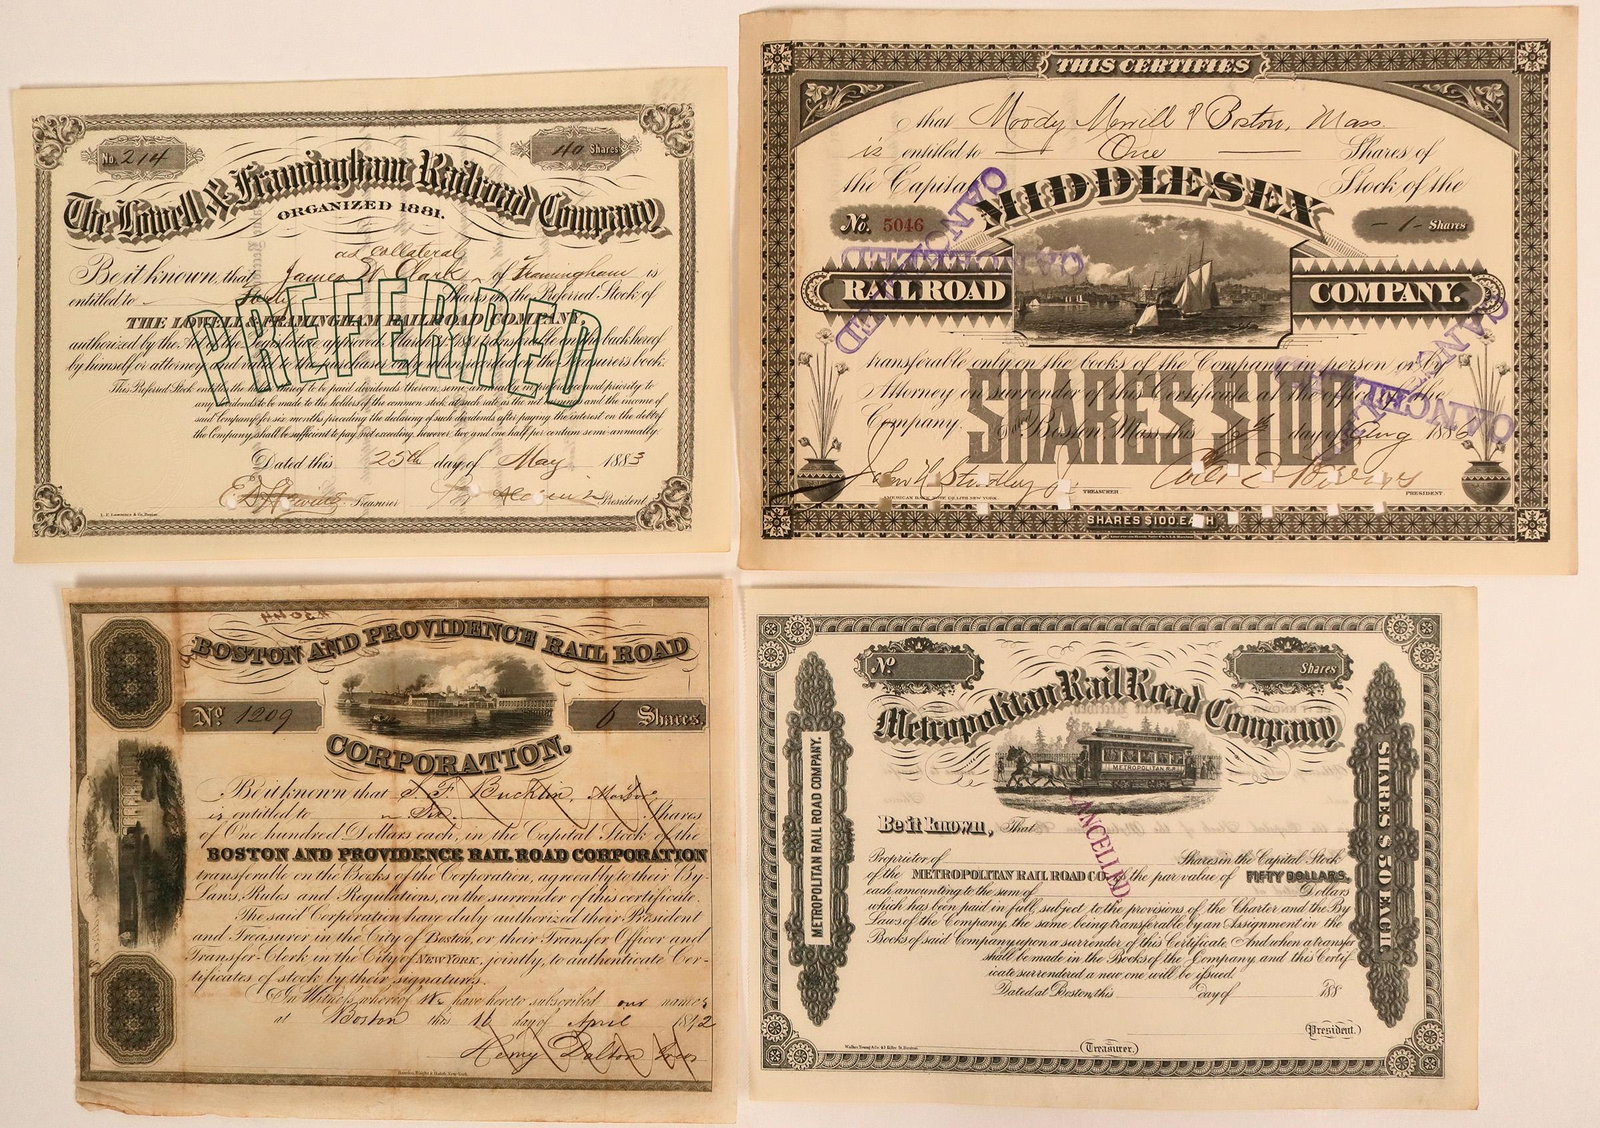 No. 214
40 Shares
The Lowell & Framingham Railroad Company
ORGANIZED 1881.
as collateral
Be it known, that James W. Clark of Framingham is
entitled to Forty Shares in the Preferred Stock of
THE LOWELL & FRAMINGHAM RAILROAD COMPANY,
PREFERRED
authorized by the Act of the Legislature approved March
by himself or attorney
This Preferred Stock entitles the
any dividends to be made to the holders of the common stock at such rate as the net
and the income of
said Company for six months preceding the declaring of such dividends after paying the interest on the debt of
the Company, shall be sufficient to pay, not exceeding, however, two and one half per centum semi-annually.
Dated this 25th day of May 1883
Treasurer
President
THIS CERTIFIES
that Moody Merrill of Boston, Mass
is entitled to One Shares of
the Capital Stock of the
MIDDLESEX
No. 5046
- 1 - Shares
RAILROAD COMPANY.
CANCELLED
CANCELLED
CANCELLED
CANCELLED
transferable only on the books of the Company in person or by
Attorney on surrender of this Certificate at the office of the
Company. Boston, Mass this day of Aug 188
SHARES $100
TREASURER
PRESIDENT
AMERICAN BANK NOTE CO. LITH. NEW YORK
SHARES $100. EACH
BOSTON AND PROVIDENCE RAIL ROAD
No. 1209
6 Shares,
CORPORATION.
Be it known that F. Bucklin,
is entitled to Six Shares
of One hundred Dollars each, in the Capital Stock of the
BOSTON AND PROVIDENCE RAIL ROAD CORPORATION
transferable on the Books of the Corporation, agreeably to their By-
Laws, Rules and Regulations, on the surrender of this certificate.
The said Corporation have duly authorized their President
and Treasurer in the City of Boston, or their Transfer Officer and
Transfer-Clerk in the City of NEW YORK, jointly, to authenticate Cer-
tificates of stock by their signatures.
In Witness whereof We have hereto subscribed our names
at Boston this 16 day of April
Henry Dalton
No.
Shares
Metropolitan Rail Road Company
METROPOLITAN R.R.
METROPOLITAN RAIL ROAD COMPANY.
SHARES $50 EACH
CANCELLED.
Be it known, That
Proprietor of Shares in the Capital Stock
of the METROPOLITAN RAIL ROAD CO. of the par value of FIFTY DOLLARS,
each amounting to the sum of Dollars
which has been paid in full, subject to the provisions of the Charter and the By
Laws of the Company, the same being transferable by an Assignment in the
Books of said Company upon a surrender of this Certificate And when a transfer
shall be made in the Books of the Company, and this Certif-
icate surrendered a new one will be issued.
Dated at Boston, this day of 188
(President.)
(Treasurer.)